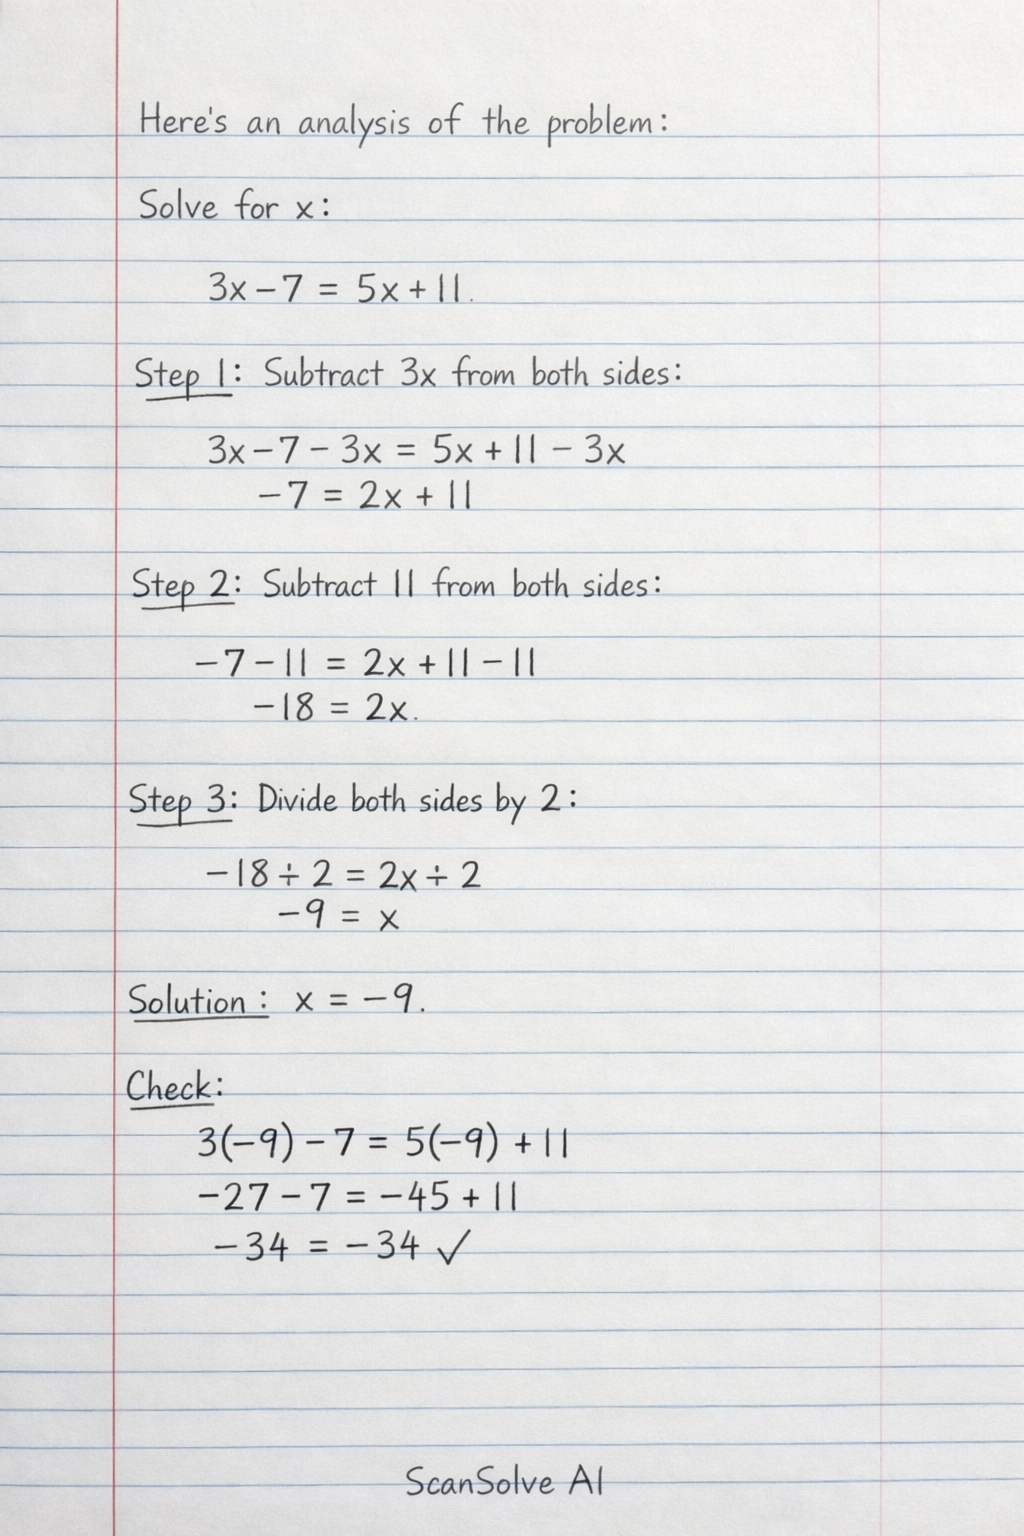 Here's an analysis of the problem:
Solve for x:
3x – 7 = 5x + 11.
Step 1: Subtract 3x from both sides:
3x – 7 – 3x = 5x + 11 – 3x
–7 = 2x + 11
Step 2: Subtract 11 from both sides:
–7 – 11 = 2x + 11 – 11
–18 = 2x.
Step 3: Divide both sides by 2:
–18 ÷ 2 = 2x ÷ 2
–9 = x
Solution: x = –9.
Check:
3(–9) – 7 = 5(–9) + 11
–27 – 7 = –45 + 11
–34 = –34 ✓
ScanSolve AI